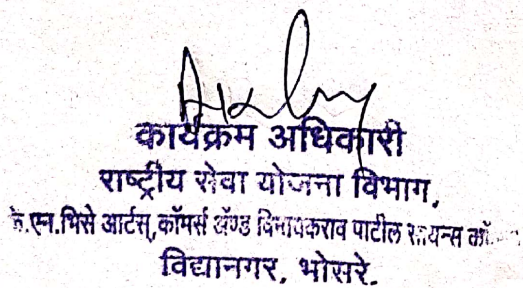 कार्यक्रम अधिकारी
राष्ट्रीय सेवा योजना विभाग,
के.एन.भिसे आर्टस्,कॉमर्स ॲण्ड विनायकराव पाटील सायन्स
विद्यानगर, भोसरे.